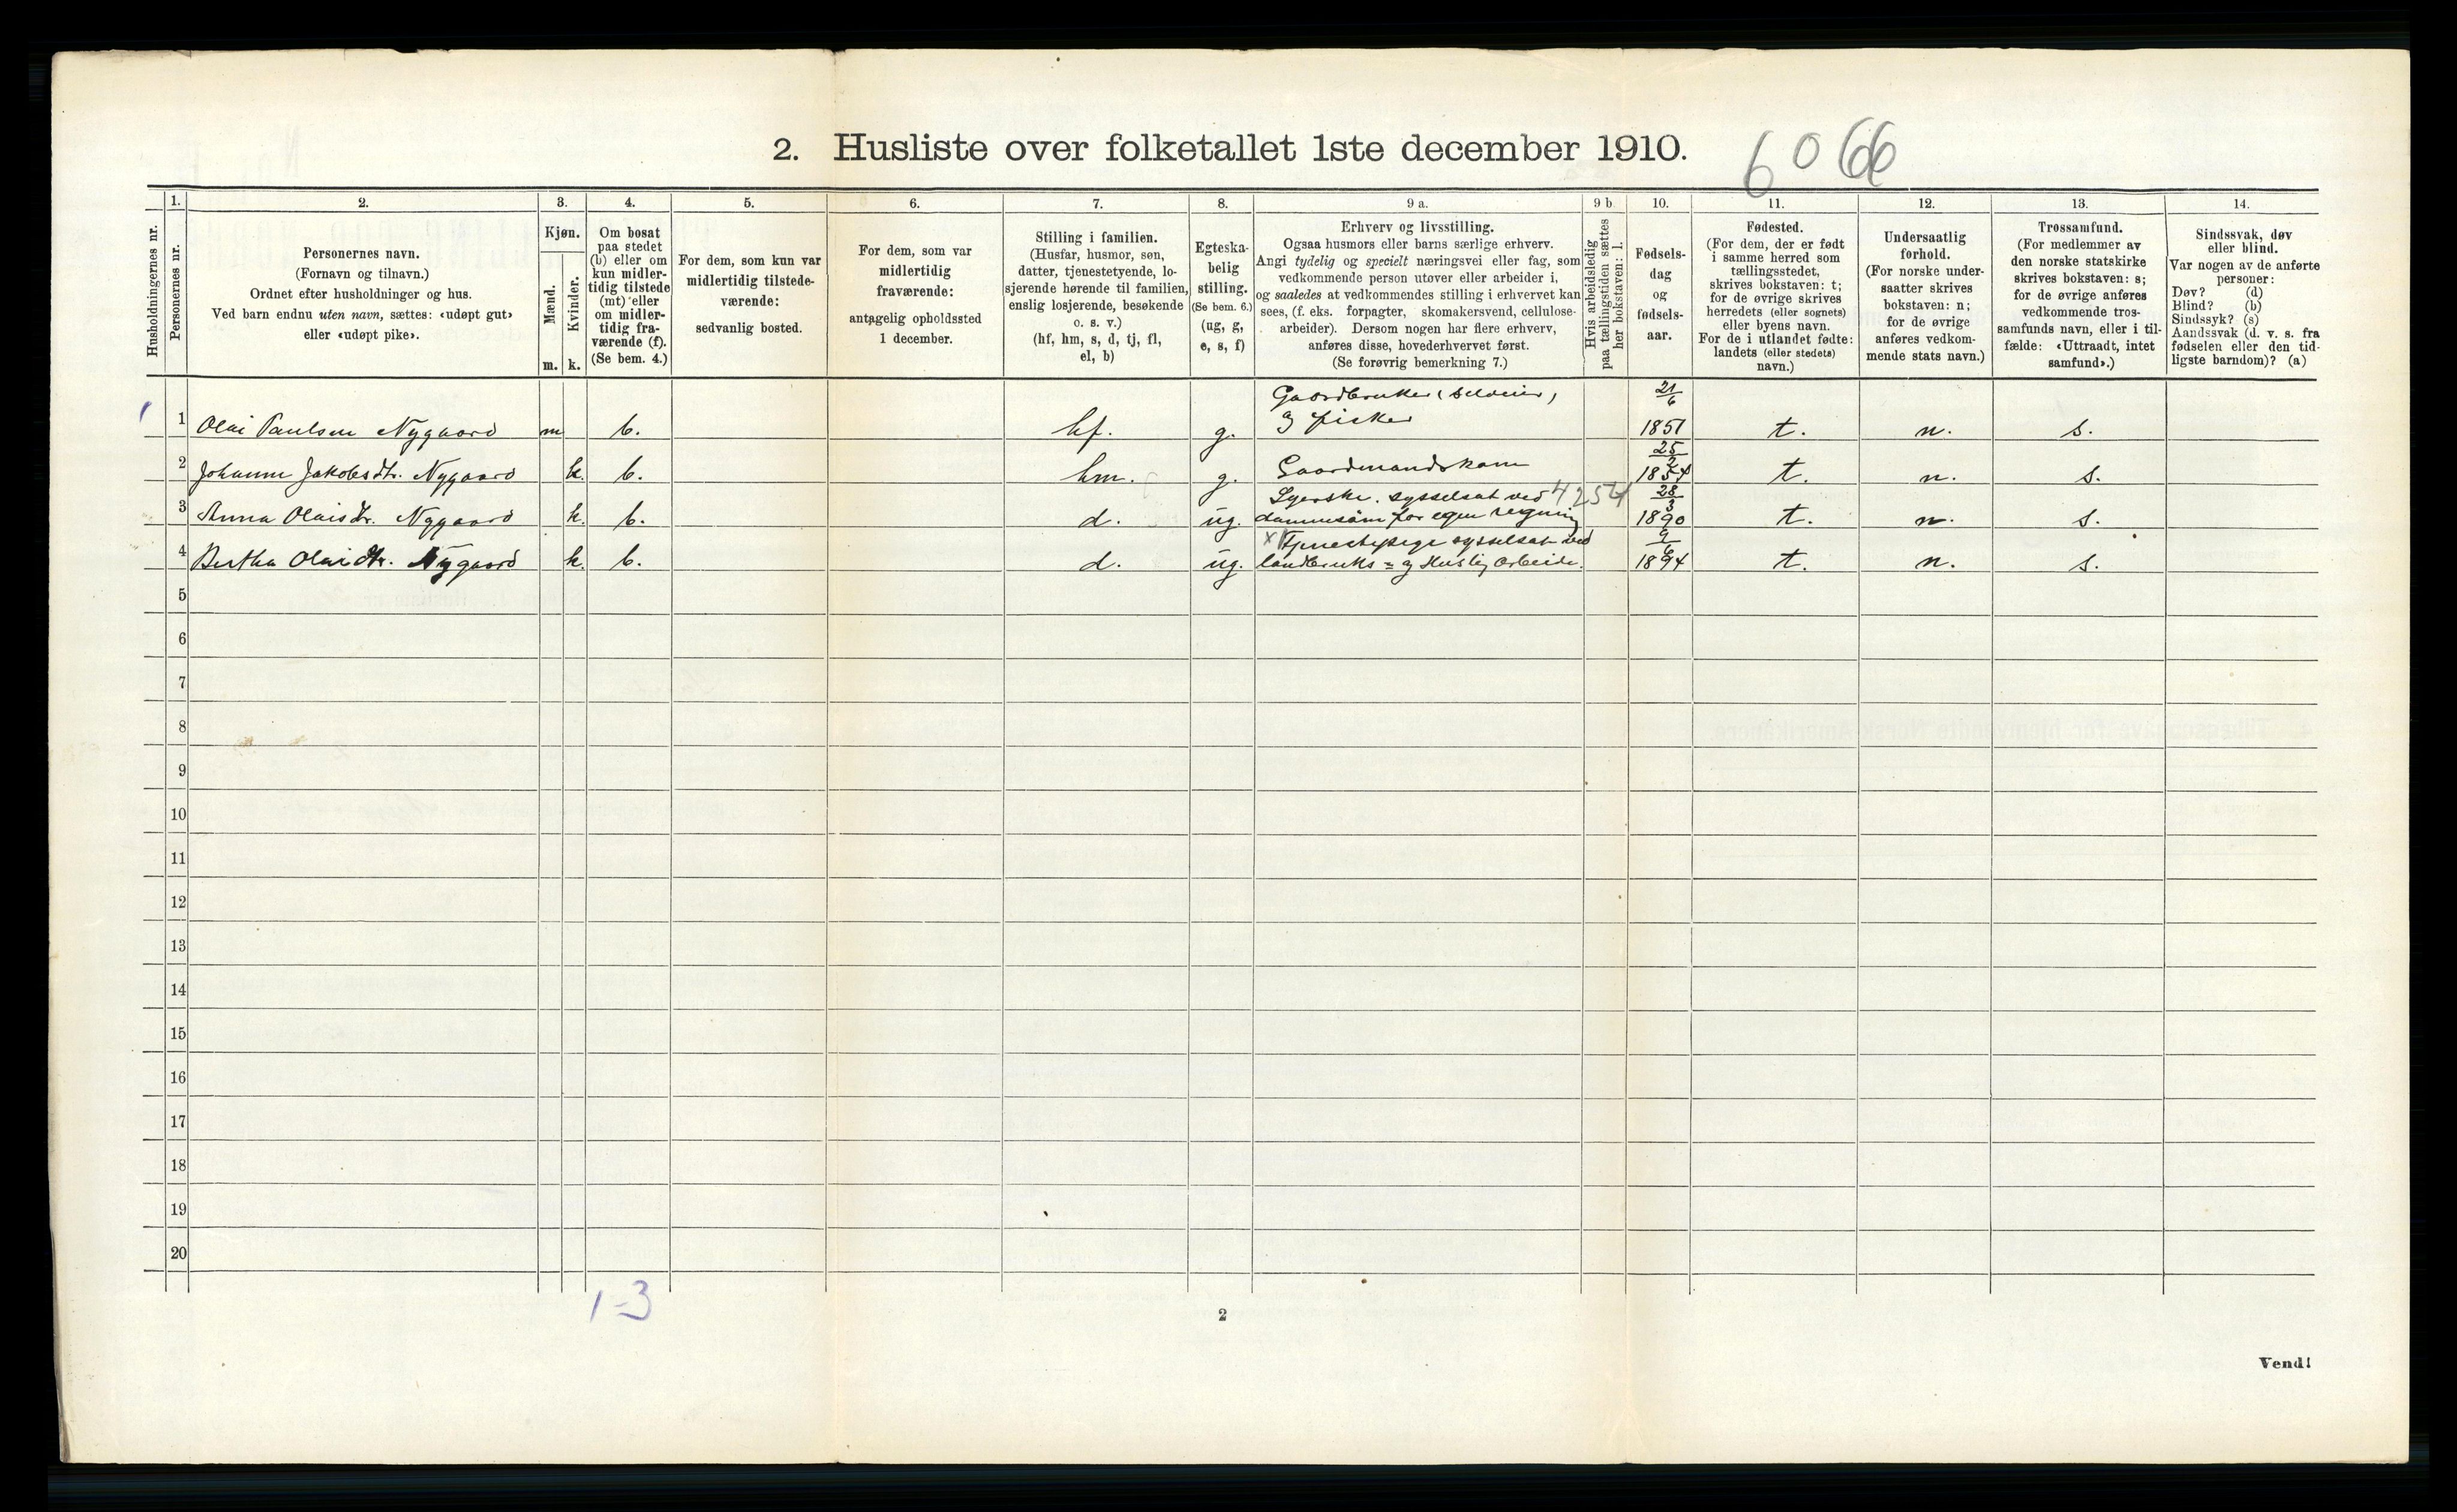 2. Husliste over folketallet 1ste december 1910.
6066
Husholdningernes nr.
1.
Personernes nr.
2.
Personernes navn.
(Fornavn og tilnavn.)
Ordnet efter husholdninger og hus.
Ved barn endnu uten navn, sættes: «udøpt gut»
eller «udøpt pike».
3.
Kjøn.
Mænd.
Kvinder.
m. k.
4.
Om bosat
paa stedet
(b) eller om
kun midler-
tidig tilstede
(mt) eller
om midler-
tidig fra-
værende (f).
(Se bem. 4.)
5.
For dem, som kun var
midlertidig tilstede-
værende:
sedvanlig bosted.
6.
For dem, som var
midlertidig
fraværende:
antagelig opholdssted
1 december.
7.
Stilling i familien.
(Husfar, husmor, søn,
datter, tjenestetyende, lo-
sjerende hørende til familien,
enslig losjerende, besøkende
o. s. v.)
(hf, hm, s, d, tj, fl,
el, b)
8.
Egteska-
belig
stilling.
(Se bem. 6.)
(ug, g,
e, s, f)
9 a.
Erhverv og livsstilling.
Ogsaa husmors eller barns særlige erhverv.
Angi tydelig og specielt næringsvei eller fag, som
vedkommende person utøver eller arbeider i,
og saaledes at vedkommendes stilling i erhvervet kan
sees, (f. eks. forpagter, skomakersvend, cellulose-
arbeider). Dersom nogen har flere erhverv,
anføres disse, hovederhvervet først.
(Se forøvrig bemerkning 7.)
9 b
Hvis arbeidsledig
paa tællingstiden sættes
her bokstaven: l.
10.
Fødsels-
dag
og
fødsels-
aar.
11.
Fødested.
(For dem, der er født
i samme herred som
tællingsstedet,
skrives bokstaven: t;
for de øvrige skrives
herredets (eller sognets)
eller byens navn.
For de i utlandet fødte:
landets (eller stedets)
navn.)
12.
Undersaatlig
forhold.
(For norske under-
saatter skrives
bokstaven: n;
for de øvrige
anføres vedkom-
mende stats navn.)
13.
Trossamfund.
(For medlemmer av
den norske statskirke
skrives bokstaven: s;
for de øvrige anføres
vedkommende tros-
samfunds navn, eller i til-
fælde: «Uttraadt, intet
samfund».)
14.
Sindssvak, døv
eller blind.
Var nogen av de anførte
personer:
Døv? (d)
Blind? (b)
Sindssyk? (s)
Aandssvak (d. v. s. fra
fødselen eller den tid-
ligste barndom)? (a)
Gaardbruker (selveier)
21/6
1 1 Olai Paulsen Nygaard m b. hf. g. og fisker 1851 t. n. s.
25/2
2 Johanne Jakobsdtr. Nygaard k. b. hm. g. Gaardmandskone 1854 t. n. s.
Syerske. sysselsat ved 4254 28/3
3 Anna Olaisdtr. Nygaard k. b. d. ug. damesøm for egen regning 1890 t. n. s.
x Tjenestepige sysselsat ved 9/6
4 Bertha Olaidtr. Nygaard k. b. d. ug. landbruks = og Huslig Arbeide. 1894 t. n. s.
5
6
7
8
9
10
11
12
13
14
15
16
17
18
19
20
1-3
2
Vend!